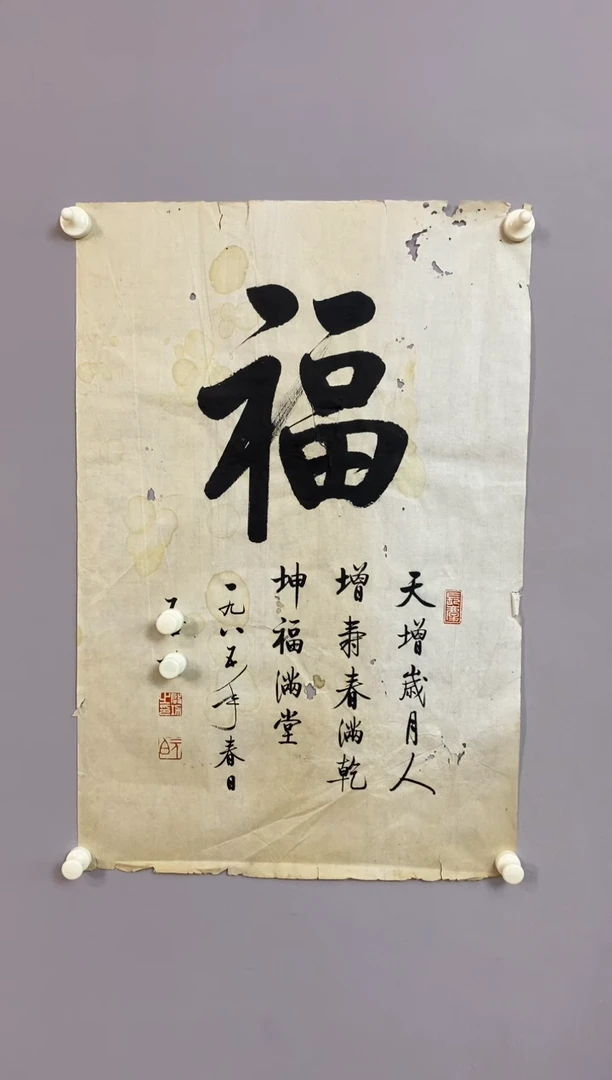 福
天增歲月人
增寿春滿乾
坤福滿堂
一九八五年春日